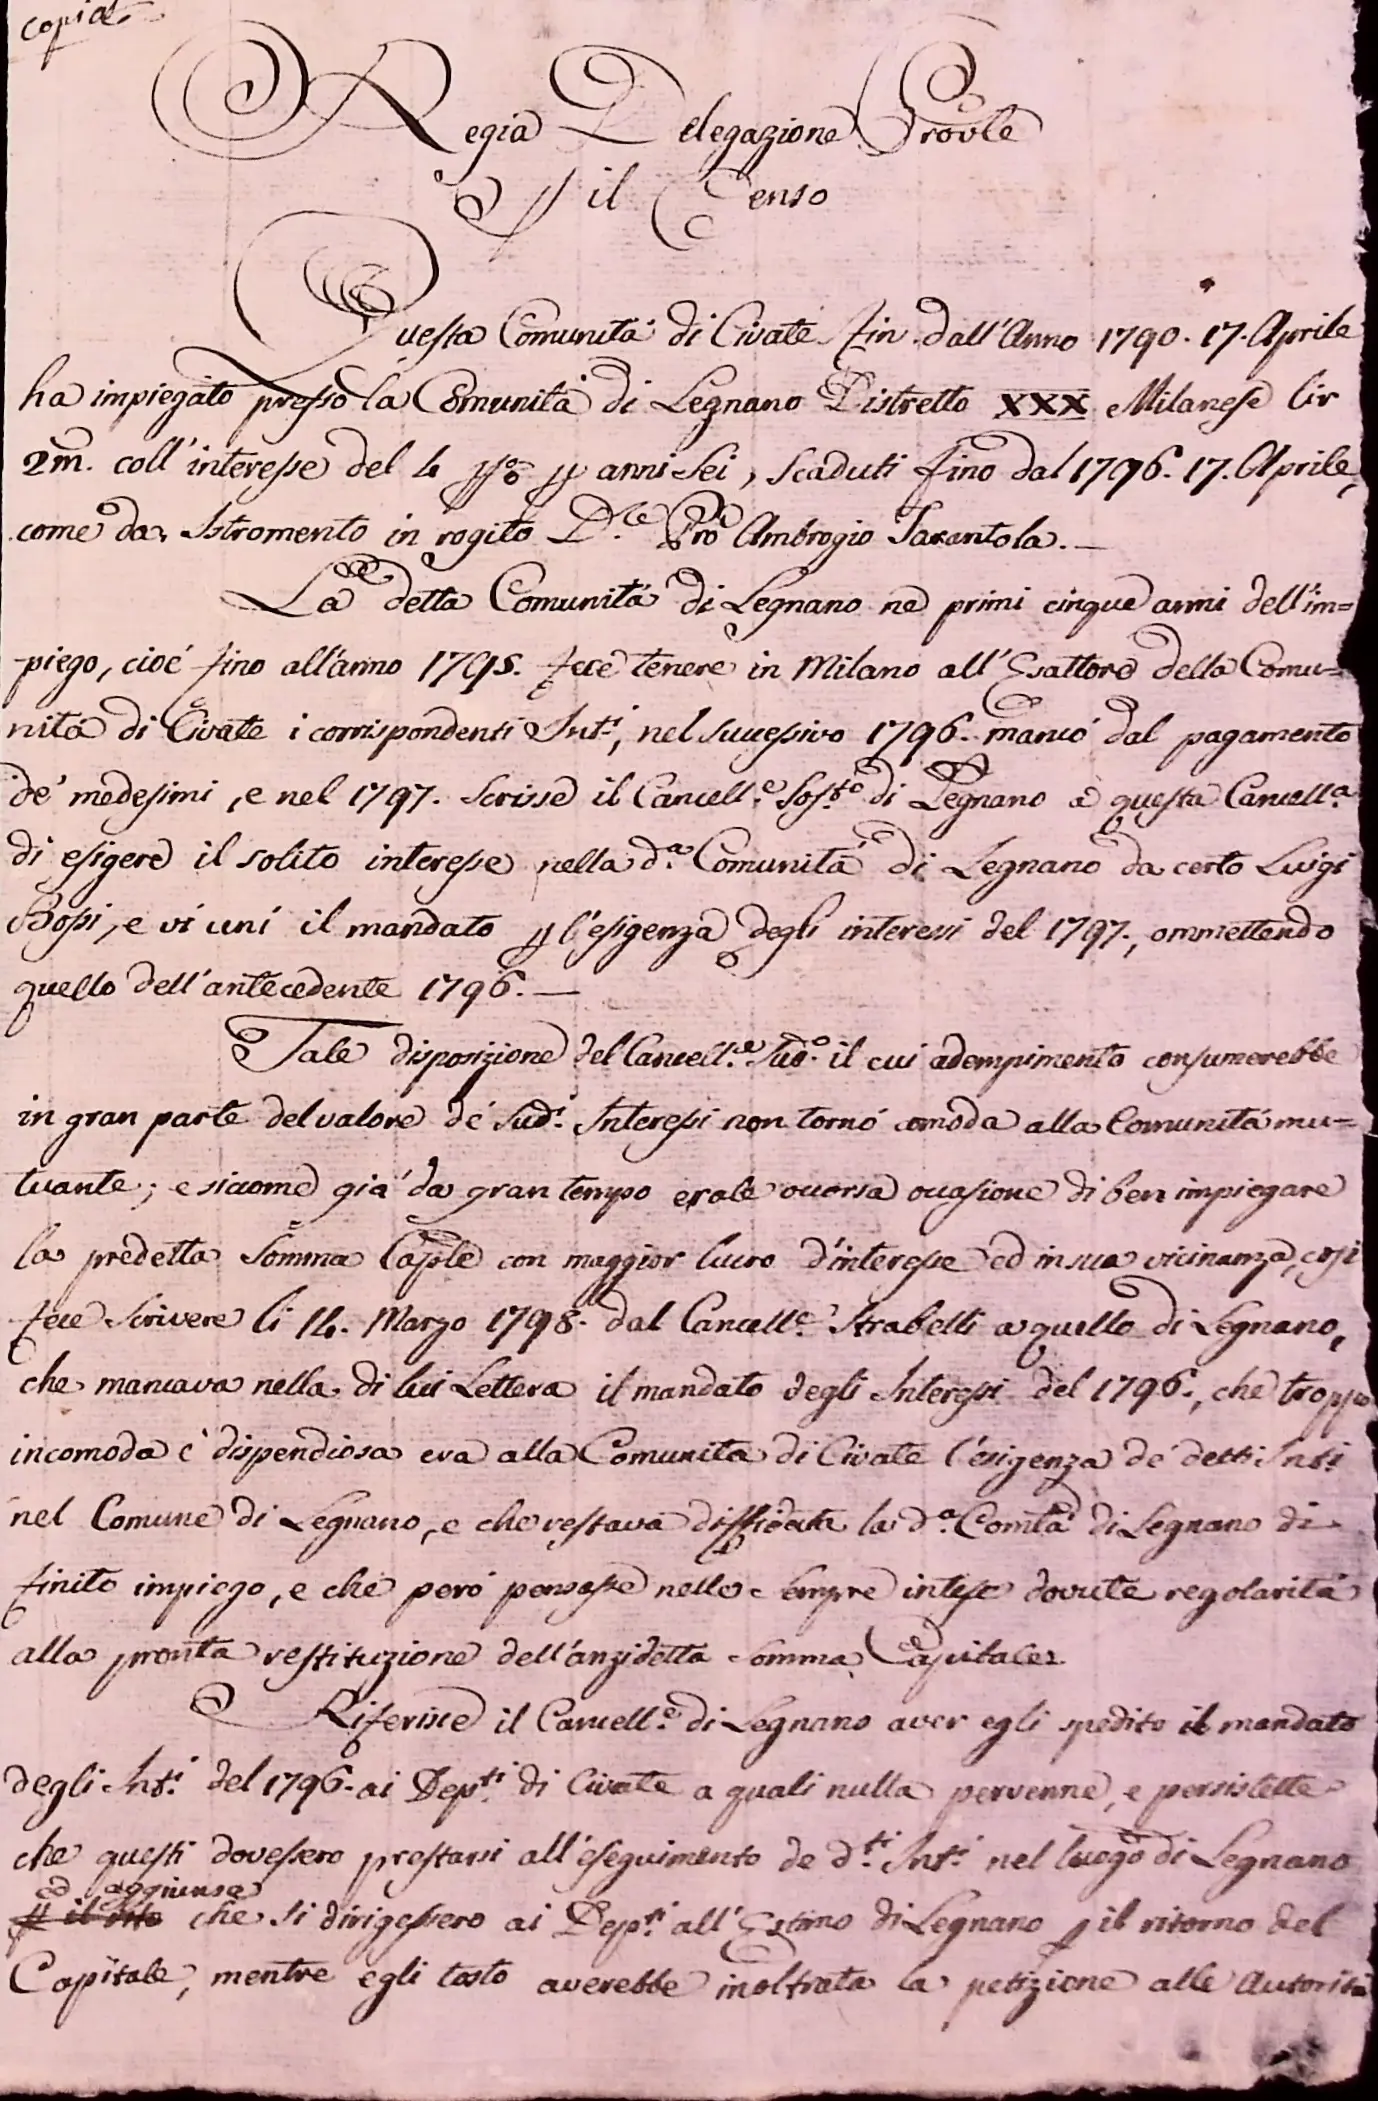 Copia
Regia Delegazione Prov.le
p il Censo
Questa Comunità di Civate fin dall'Anno 1790. 17. Aprile
ha impiegato presso la Comunità di Legnano Distretto XXX Milanese lir
2m. coll'interesse del 4 p% p anni sei, scaduti fino dal 1796. 17. Aprile,
come da Istromento in rogito D.r Ambrogio Tarantola. —
La detta Comunità di Legnano ne primi cinque anni dell'im=
piego, cioè fino all'anno 1795. fece tenere in Milano all'Esattore della Comu=
nità di Civate i corrispondenti Int.i, nel successivo 1796. mancò dal pagamento
de' medesimi, e nel 1797. scrisse il Cancell.e Sost.o di Legnano a questa Cancell.a
di esigere il solito interesse nella d.a Comunità di Legnano da certo Luigi
Bossi, e vi unì il mandato p l'esigenza degli interessi del 1797., ommettendo
quello dell'antecedente 1796. —
Tale disposizione del Cancell.e Sud.o il cui adempimento consumerebbe
in gran parte del valore de' Sud.i Interessi non tornò comoda alla Comunità mu=
tuante; e siccome già da gran tempo erale occorsa occasione di ben impiegare
la predetta Somma Cap.le con maggior lucro d'interesse ed in sua vicinanza, così
fece scrivere li 14. Marzo 1798. dal Cancell.e Strabelli a quello di Legnano,
che mancava nella di lui Lettera il mandato degli Interessi del 1796., che troppo
incomoda e dispendiosa era alla Comunità di Civate l'esigenza de' detti Int.i
nel Comune di Legnano, e che restava diffidata la d.a Com.tà di Legnano di
finito impiego, e che però pensasse nelle sempre intese dovute regolarità
alla pronta restituzione dell'anzidetta somma Capitale.
Riferisce il Cancell.e di Legnano aver egli spedito il mandato
degli Int.i del 1796. ai Dep.ti di Civate a quali nulla pervenne, e persistette
che questi dovessero prestarsi all'eseguimento de d.ti Int.i nel luogo di Legnano
ed aggiunse
p il che si dirigessero ai Dep.ti all'Estimo di Legnano p il ritorno del
Capitale, mentre egli tosto averebbe inoltrata la petizione alle Autorità